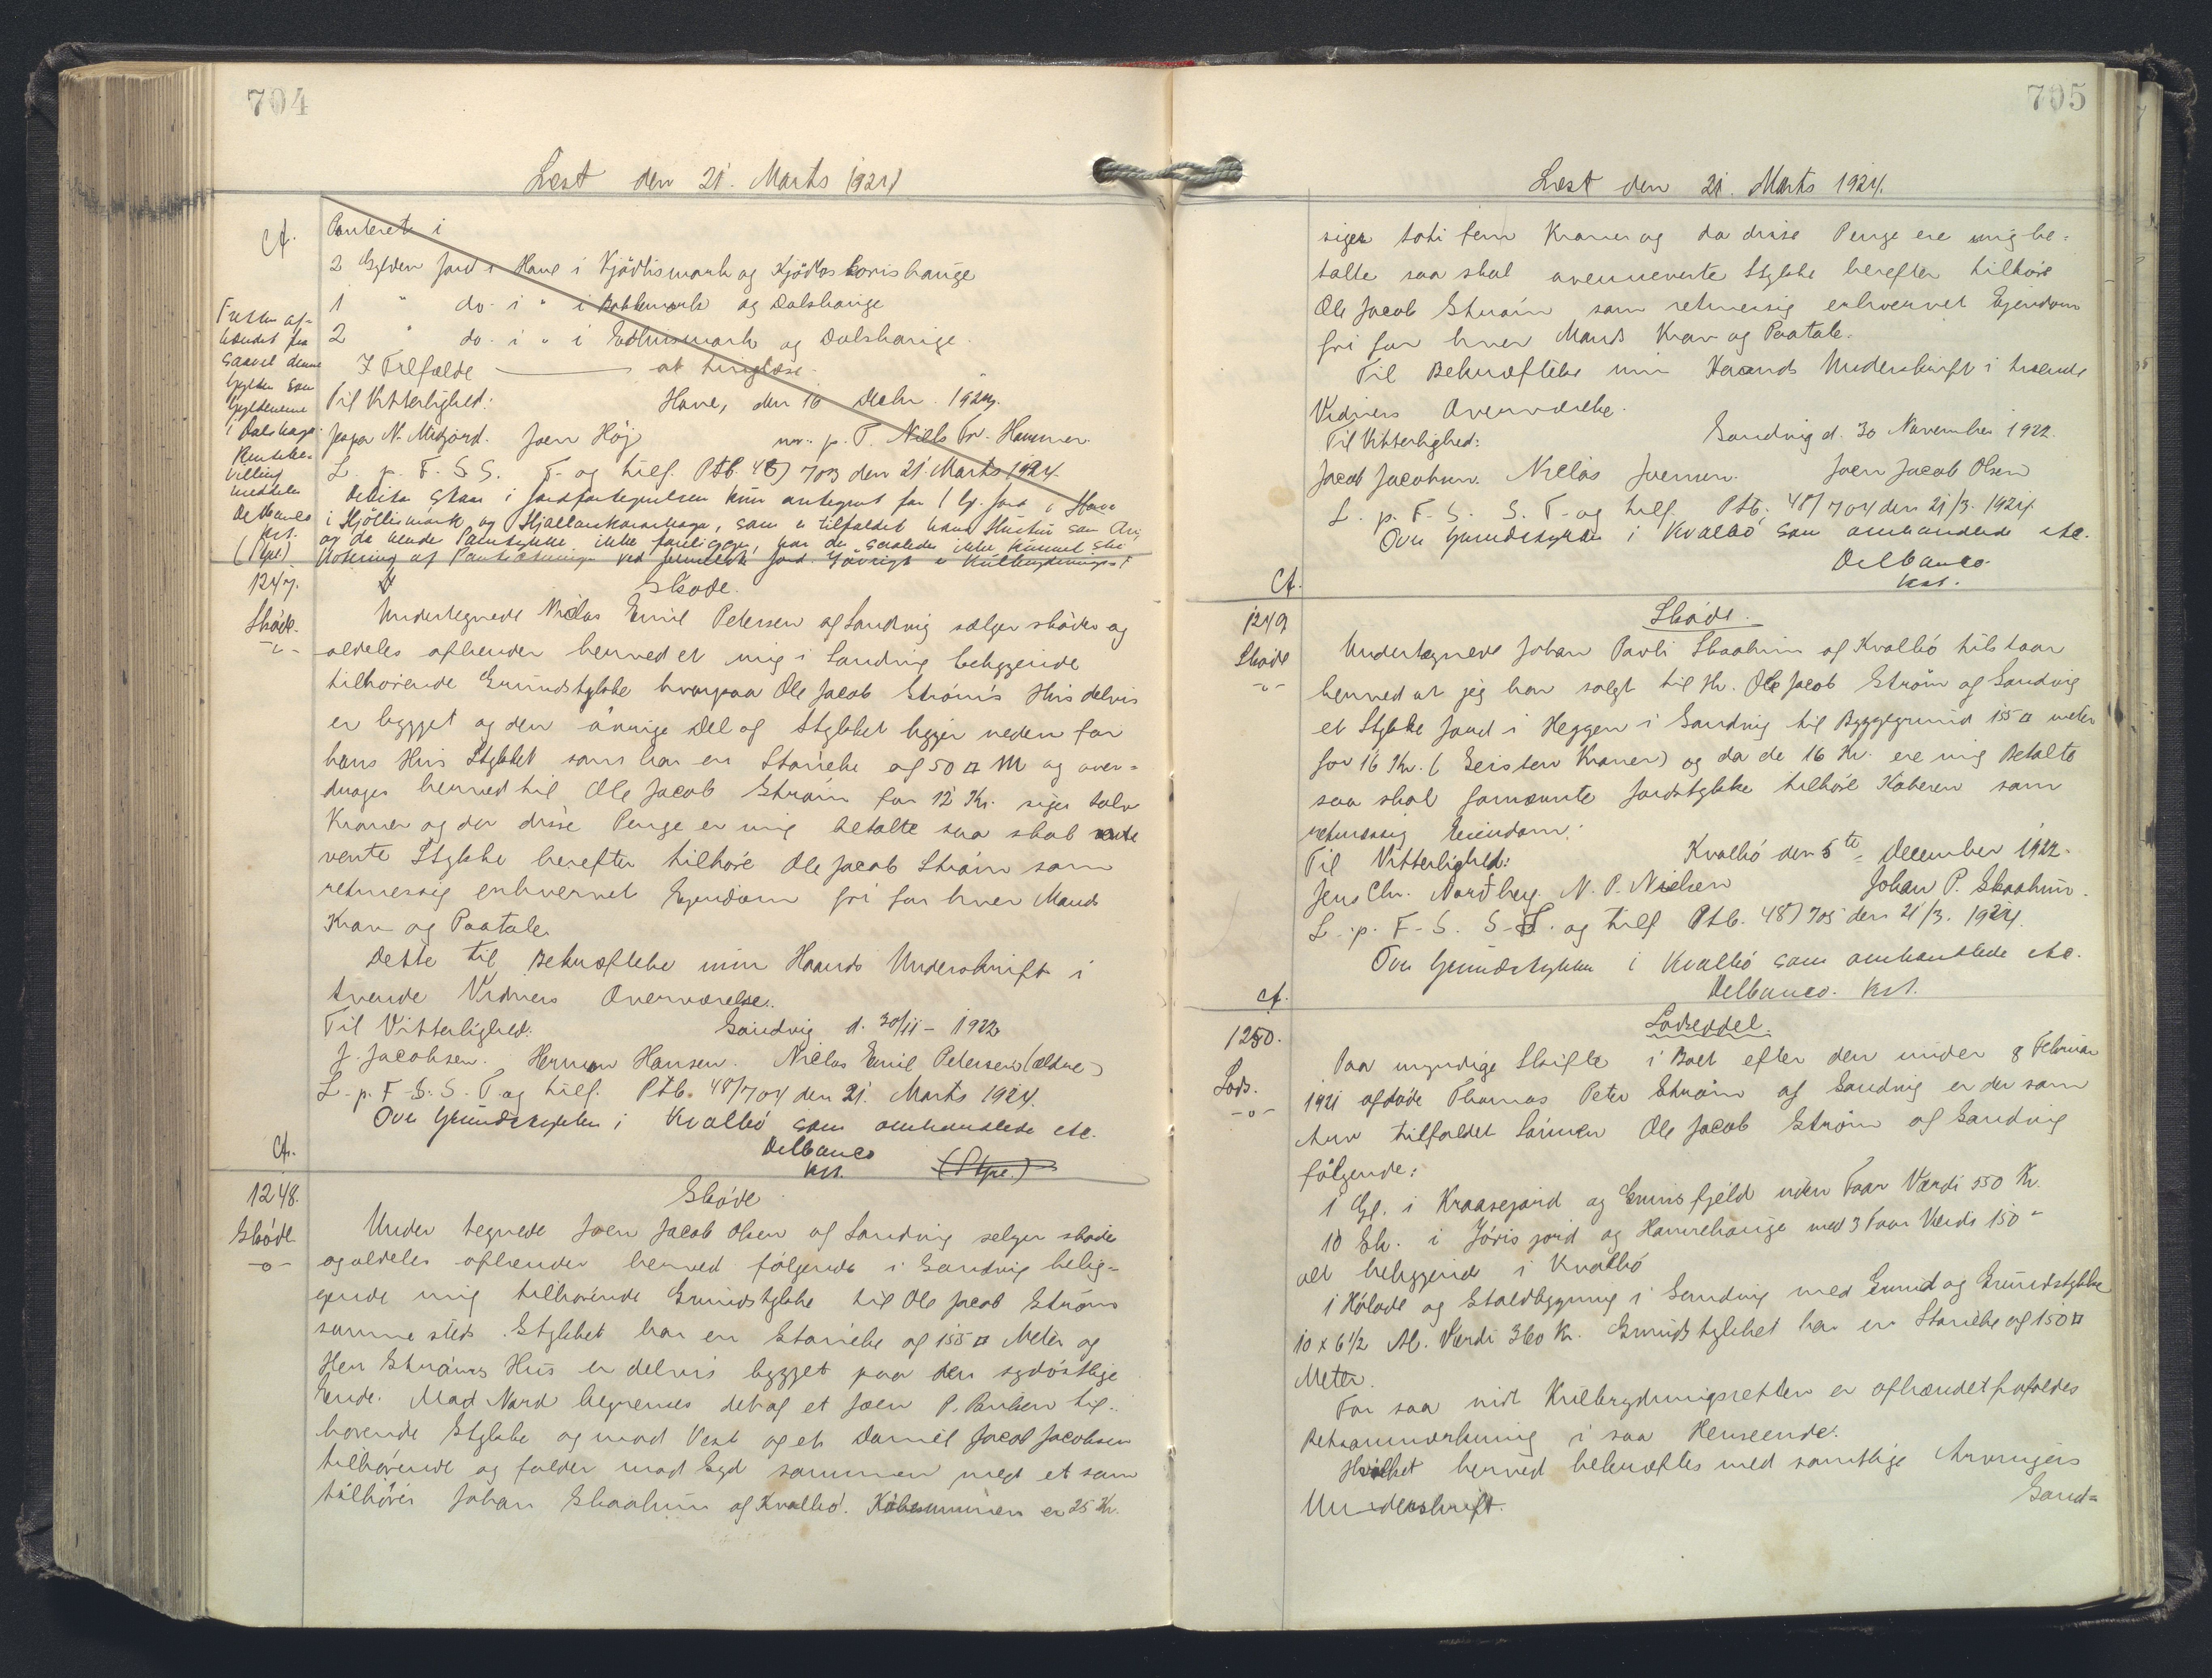 704
Læst den 21. Marts 1924
Cf.
Panteret i
2 Gylden Jord i Hove i Kjödlismark og
1 " do. i " i Bakkemark og Dalshauge
2 " do. i " i Eidlnismark og Dalshauge.
I Tilfælde ——— at tinglæse.
Til Vitterlighed: Hove, den 16 Decbr. 192
N. Midjord. Joen Höj p. T. Niels Fr. Hammer.
L. p. F. S S. T. og tilf. Ptb. 48/703 den 21. Marts 1924.
i Jordfortegnelsen kun antegnet for 1 Gl. Jord i Hove
i Kjöllismark og som er tilfaldet hans Hustru som Arv
og da hendes ikke foreligger, har der saaledes ikke kunnet ske
Notering af Pantsætningen ved Jord. Iövrigt er
af-
hændet fra
saavel denne
Gylden som
Gyldenerne
i Dalshauge.
villing
meddeles
Delbanco
kst.
1247.
Sköde.
-"-
Sköde.
Undertegnede Niclas Emil Petersen af Sandvig sælger sköder og
aldeles afhender herved et mig i Sandvig beliggende
tilhörende Grundstykke hvorpaa Ole Jacob Ströms Hus delvis
er bygget og den övrige Del af Stykket ligger neden for
hans Hus Stykket som har en Störrelse af 50 □ M og over=
drages herved til Ole Jacob Ström for 12 Kr. siger tolv
Kroner og da disse Penge er mig betalte saa skal
nte Stykke herefter tilhöre Ole Jacob Ström som
retmessig erhvervet Ejendom fri for hver Mands
Krav og Paatale.
Dette til Bekræftelse min Haands Underskrift i
tvende Vidners Overværelse.
Til Vitterlighed: Sandvig d. 30/11 - 1922
J. Jacobsen. Herman Hansen. Niclas Emil Petersen (ældre)
L. p. F. S. S. T. og tilf. Ptb. 48/704 den 21. Marts 1924.
Over Grundstykket i Kvalbö som omhandlede etc.
Delbanco
kst.
Cf.
1248.
Sköde
-o-
Sköde
Under tegnede Joen Jacob Olsen af Sandvig selger sköder
og aldeles afhender herved följende i Sandvig belig=
gende mig tilhörende Grundstykke til Ole Jacob Ström
samme steds. Stykket har en Störrelse af 155 □ Meter og
Herr Ströms Hus er delvis bygget paa den sydöstlige
Ende. Mod Nord begrenses det af et Joen P. Poulsen til-
hörende Stykke og mod Vest af et Daniel Jacob Jacobsen
tilhörende og falder mod Syd sammen med et som
tilhörer Johan Skaalum af Kvalbö. Köbesummen er 25 Kr.
705
Læst den 21. Marts 1924.
siger toti fem Kroner og da disse Penge ere mig be=
talte saa skal ovennevnte Stykke herefter tilhöre
Ole Jacob Ström som retmessig erhvervet Ejendom
fri for hver Mands Krav og Paatale.
Til Bekræftelse min Haands Underskrift i tvende
Vidners Overværelse.
Til Vitterlighed: Sandvig d. 30 November 1922.
Jacob Jacobsen. Niclas Joensen. Joen Jacob Olsen
L. p. F. S. S. T. og tilf. Ptb. 48/704 den 21/3. 1924.
Over Grundstykke i Kvalbö som omhandlede etc.
Delbanco.
kst.
Cf.
1249
Sköde
-"-
Sköde.
Undertegnede Johan Pauli Skaalum af Kvalbö tilstaar
herved at jeg har solgt til Hr. Ole Jacob Ström af Sandvig
et Stykke Jord i Heggen i Sandvig til Byggegrund 155 □ meter
for 16 Kr. (Seisten Kroner) og da de 16 Kr. ere mig Betalte
saa skal fornevnte Jordstykke tilhöre Köberen som
retmessig Eiendom.
Til Vitterlighed: Kvalbö den 5te December 1922.
Jens Chr. Nordberg. N. P. Nielsen Johan P. Skaalum.
L. p. F. S. S. T. og tilf Ptb. 48/705 den 21/3. 1924.
Over Grundstykke i Kvalbö som omhandlede etc.
Delbanco. kst.
Cf.
1250.
Lods.
-o-
Lodseddel.
Paa myndige Skifte i Boet efter den under 8 Februar
1921 afdöde Thomas Peter Ström af Sandvig er der som
Arv tilfaldet Sönnen Ole Jacob Ström af Sandvig
fölgende:
1 Gl. i Kraasejord og uden Faar Værdi 550 Kr.
10 Sk. i Jórisjord og Hamrehauge med 3 Faar Værdi 150 "
alt beliggende i Kvalbö
1 Hölade og Staldbygning i Sandvig med Grund og Grundstykke
10 x 6 1/2 Al. Værdi 360 Kr. Grundstykket har en Störrelse af 150 □
Meter.
For saa vidt Kulbrydningsretten er afhændet frafaldes
Retsanmærkning i saa Henseende.
Hvilket herved bekræftes med samtlige Arvingers
Underskrift.
Sand=